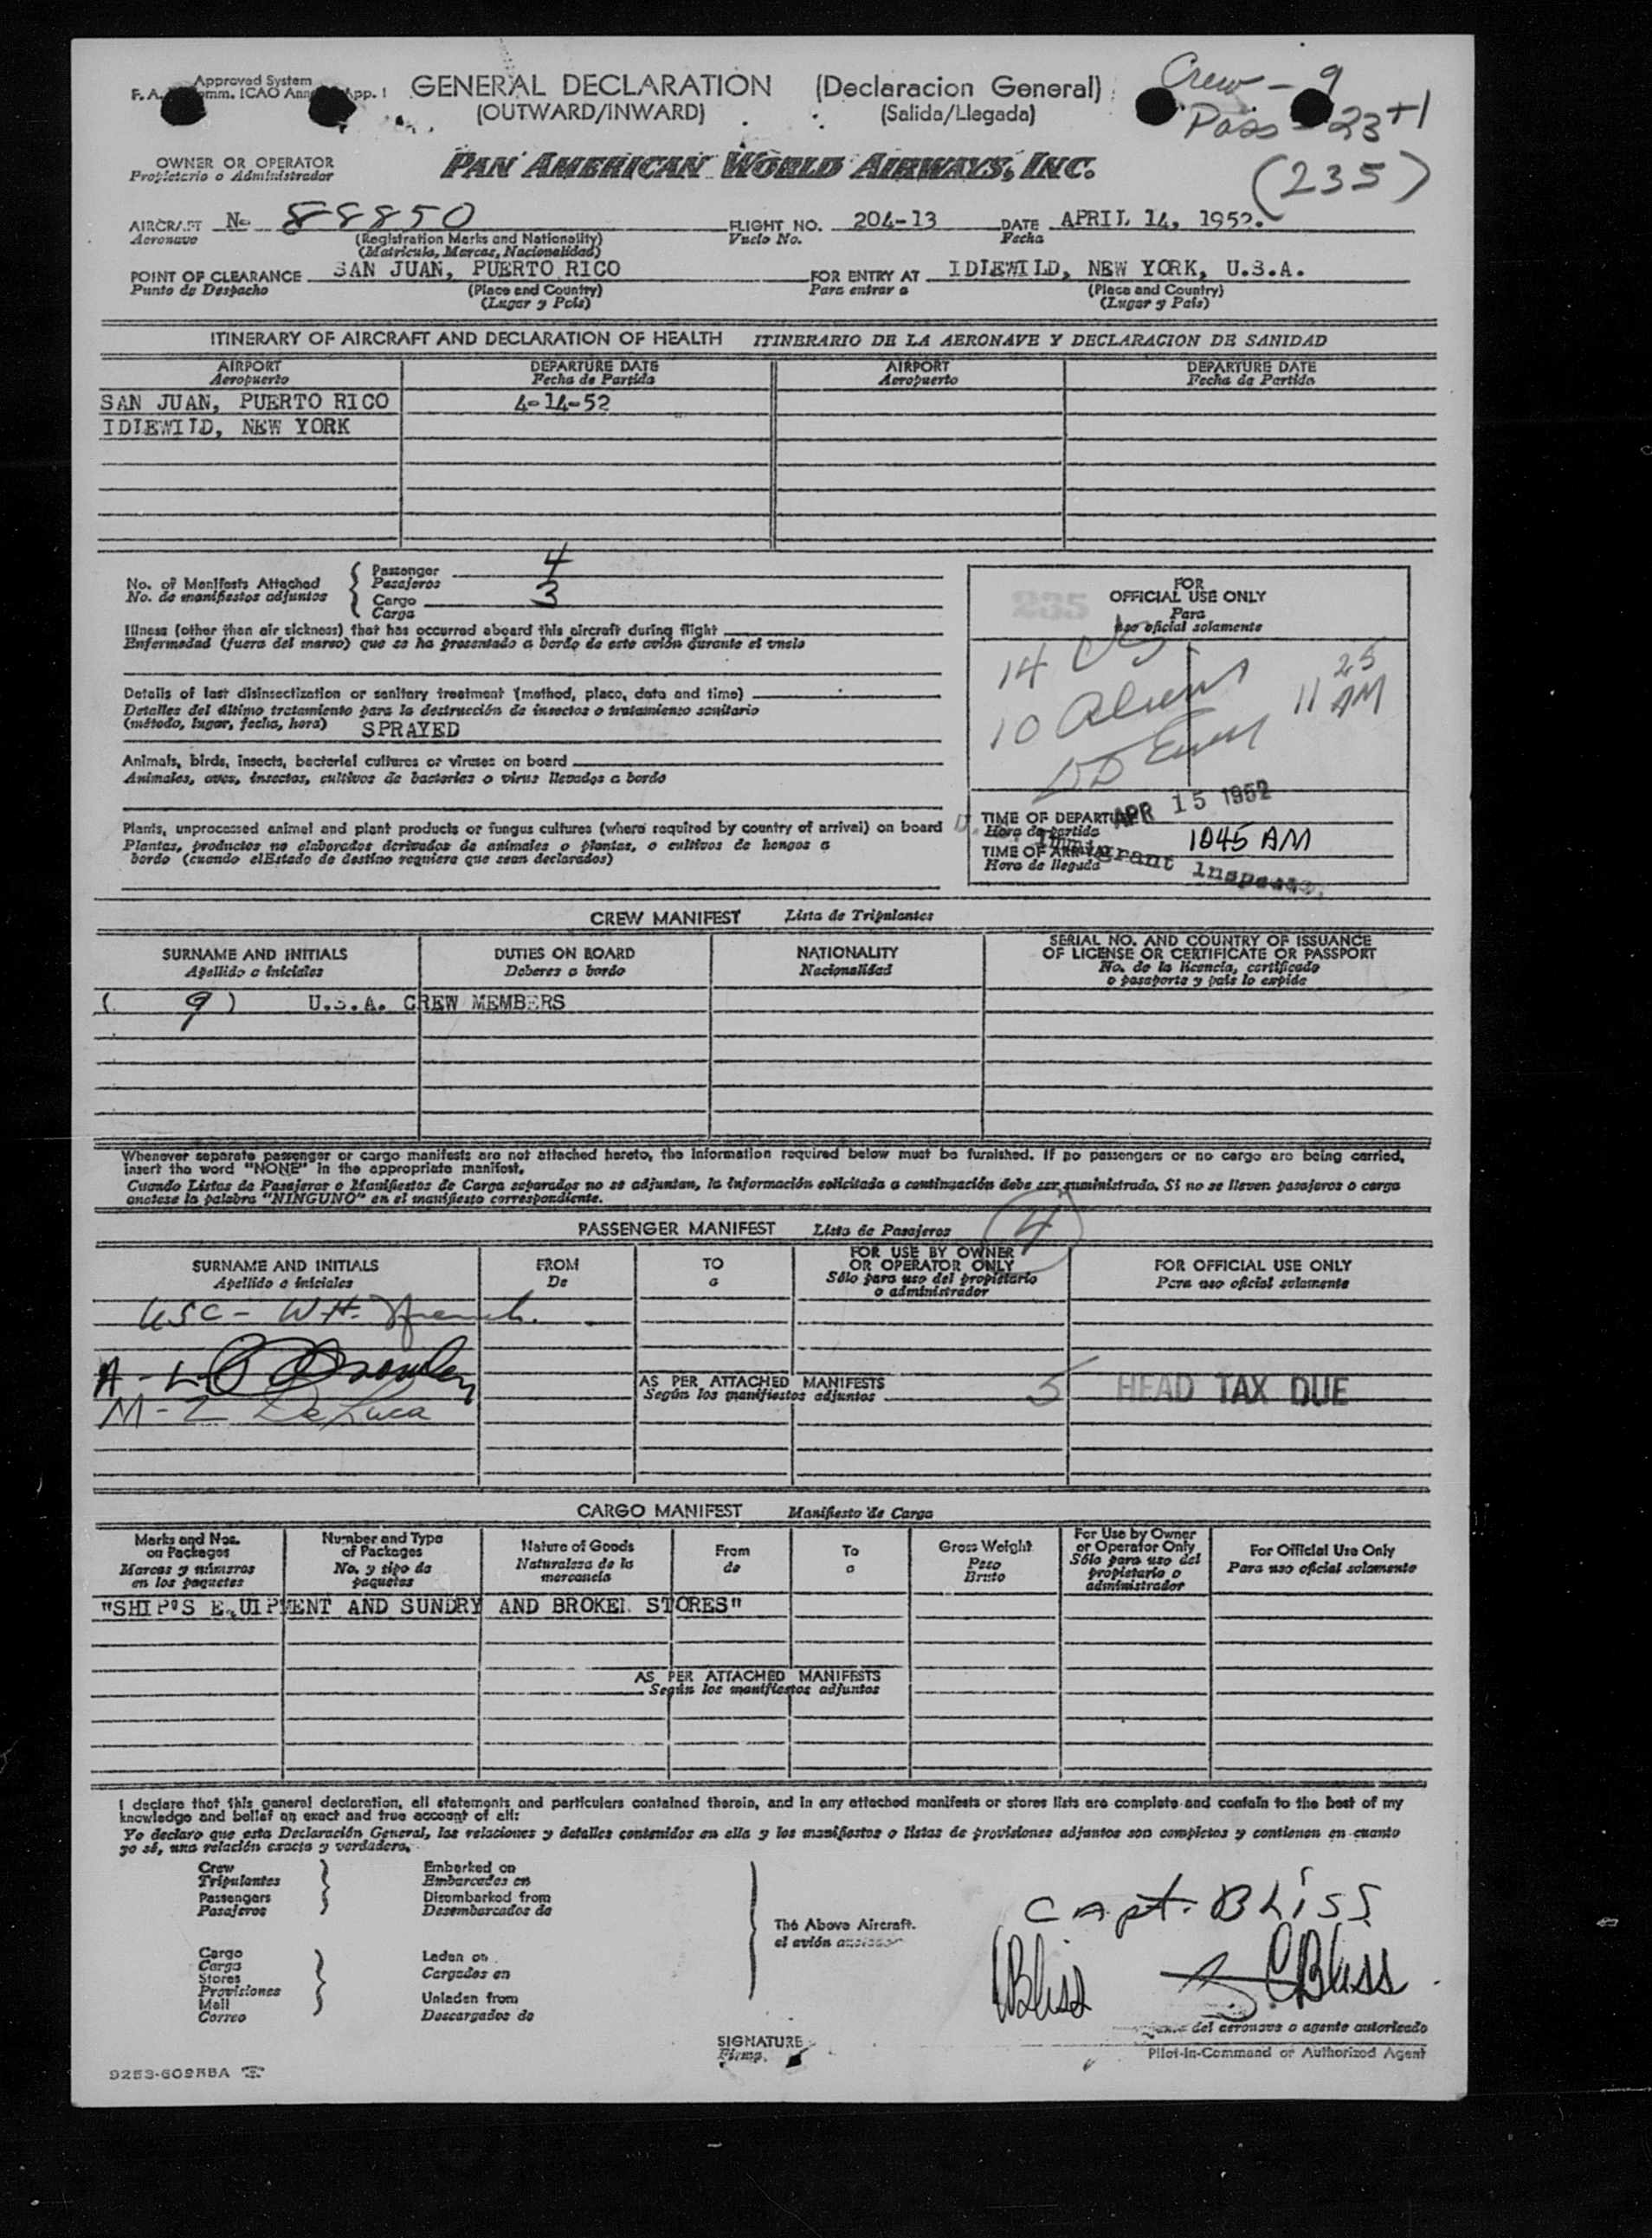 Approved System
F. A. Comm. ICAO App. 1
GENERAL DECLARATION (Declaracion General)
(OUTWARD/INWARD) (Salida/Llegada)
Crew - 9
Pass - 23 +1
(235)
OWNER OR OPERATOR
Propietario o Administrador
PAN AMERICAN WORLD AIRWAYS, INC.
AIRCRAFT No 88850 FLIGHT NO. 204-13 DATE APRIL 14, 1952.
Aeronave (Registration Marks and Nationality) Vuelo No. Fecha
(Matricula, Marcas, Nacionalidad)
POINT OF CLEARANCE SAN JUAN, PUERTO RICO FOR ENTRY AT IDLEWILD, NEW YORK, U.S.A.
Punto de Despacho (Place and Country) Para entrar a (Place and Country)
(Lugar y País) (Lugar y País)
ITINERARY OF AIRCRAFT AND DECLARATION OF HEALTH ITINERARIO DE LA AERONAVE Y DECLARACION DE SANIDAD
AIRPORT DEPARTURE DATE AIRPORT DEPARTURE DATE
Aeropuerto Fecha de Partida Aeropuerto Fecha de Partida
SAN JUAN, PUERTO RICO 4-14-52
IDLEWILD, NEW YORK
No. of Manifests Attached
No. de manifiestos adjuntos
Passenger 4
Pasajeros
Cargo 3
Carga
Illness (other than air sickness) that has occurred aboard this aircraft during flight
Enfermedad (fuera del mareo) que se ha presentado a bordo de este avión durante el vuelo
Details of last disinsectization or sanitary treatment (method, place, date and time)
Detalles del último tratamiento para la destrucción de insectos o tratamiento sanitario
(método, lugar, fecha, hora) SPRAYED
Animals, birds, insects, bacterial cultures or viruses on board
Animales, aves, insectos, cultivos de bacterias o virus llevados a bordo
Plants, unprocessed animal and plant products or fungus cultures (where required by country of arrival) on board
Plantas, productos no elaborados derivados de animales o plantas, o cultivos de hongos a
bordo (cuando el Estado de destino requiere que sean declarados)
235
FOR
OFFICIAL USE ONLY
Para
uso oficial solamente
14 US
10 Aliens
11 25 AM
APR 15 1952
TIME OF DEPARTURE
Hora de partida
1045 AM
TIME OF ARRIVAL
Hora de llegada
Immigrant Inspector
CREW MANIFEST Lista de Tripulantes
SURNAME AND INITIALS DUTIES ON BOARD NATIONALITY SERIAL NO. AND COUNTRY OF ISSUANCE
OF LICENSE OR CERTIFICATE OR PASSPORT
Apellido e iniciales Deberes a bordo Nacionalidad No. de la licencia, certificado
o pasaporte y país lo expide
( 9 ) U.S.A. CREW MEMBERS
Whenever separate passenger or cargo manifests are not attached hereto, the information required below must be furnished. If no passengers or no cargo are being carried,
insert the word "NONE" in the appropriate manifest.
Cuando Listas de Pasajeros o Manifiestos de Carga separados no se adjuntan, la información solicitada a continuación debe ser suministrada. Si no se lleven pasajeros o carga
anotese la palabra "NINGUNO" en el manifiesto correspondiente.
PASSENGER MANIFEST Lista de Pasajeros 4
SURNAME AND INITIALS FROM TO FOR USE BY OWNER
OR OPERATOR ONLY FOR OFFICIAL USE ONLY
Apellido e iniciales De a Sólo para uso del propietario
o administrador Para uso oficial solamente
USC - W.H. French.
A - L
AS PER ATTACHED MANIFESTS
Según los manifiestos adjuntos
5 HEAD TAX DUE
M - 2 De Luca
CARGO MANIFEST Manifiesto de Carga
Marks and Nos.
on Packages
Marcas y números
en los paquetes
Number and Type
of Packages
No. y tipo de
paquetes
Nature of Goods
Naturaleza de la
mercancia
From
de
To
a
Gross Weight
Peso
Bruto
For Use by Owner
or Operator Only
Sólo para uso del
propietario o
administrador
For Official Use Only
Para uso oficial solamente
"SHIP'S EQUIPMENT AND SUNDRY AND BROKEN STORES"
AS PER ATTACHED MANIFESTS
Según los manifiestos adjuntos
I declare that this general declaration, all statements and particulars contained therein, and in any attached manifests or stores lists are complete and contain to the best of my
knowledge and belief an exact and true account of all:
Yo declaro que esta Declaración General, las relaciones y detalles contenidos en ella y los manifiestos o listas de provisiones adjuntos son completos y contienen en cuanto
yo sé, una relación exacta y verdadera.
Crew
Tripulantes
Passengers
Pasajeros
Embarked on
Embarcados en
Disembarked from
Desembarcados de
Cargo
Carga
Stores
Provisiones
Mail
Correo
Laden on
Cargados en
Unladen from
Descargados de
The Above Aircraft.
el avión
Capt. Bliss
Bliss
C Bliss
del aeronave o agente autorizado
SIGNATURE
Firma.
Pilot-In-Command or Authorized Agent